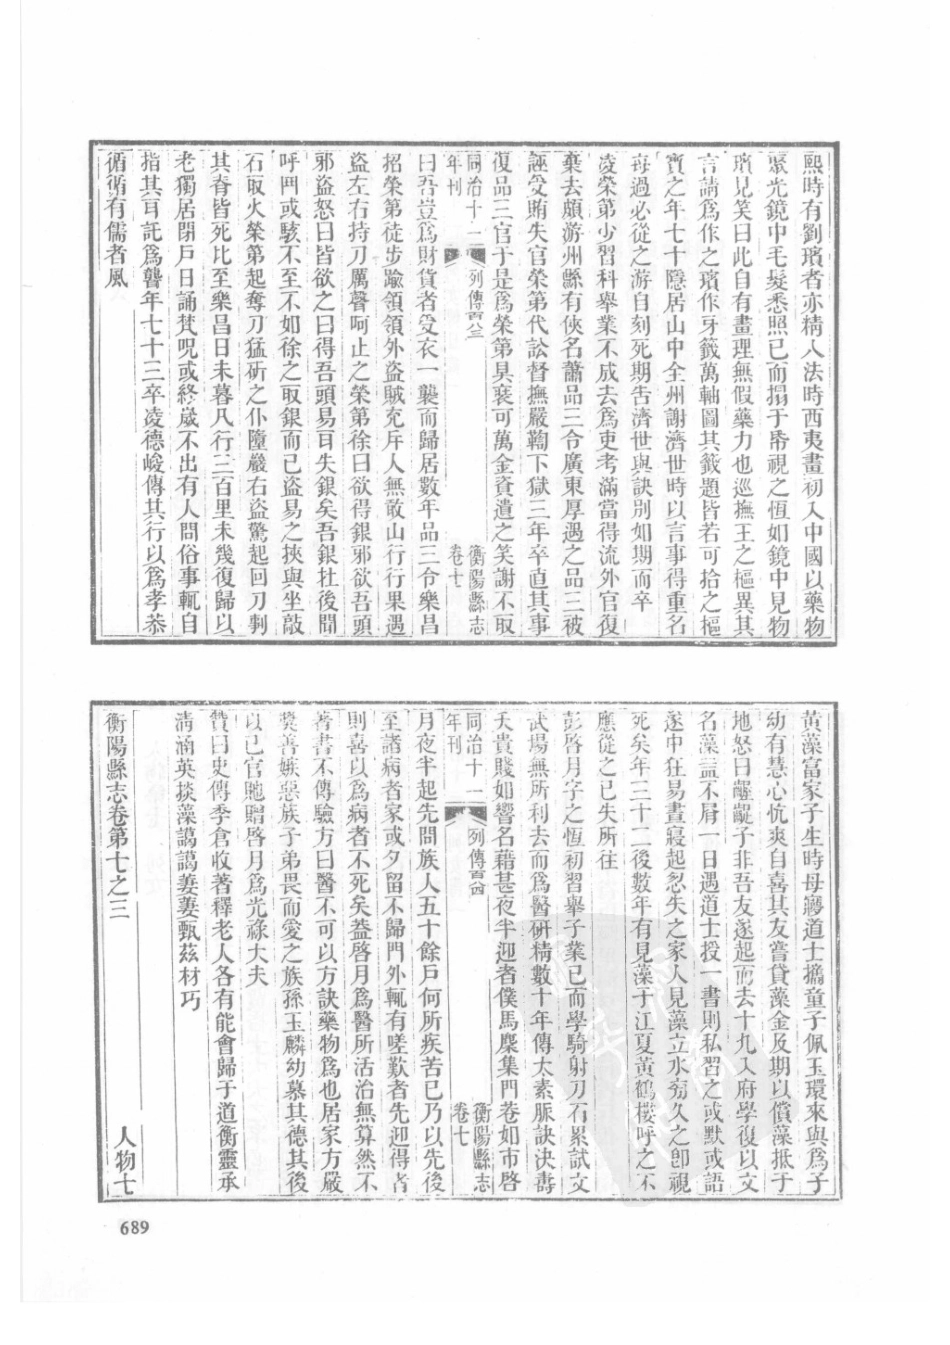 熙時有劉璸者亦精人法時西夷畫初入中國以藥物
聚光鏡中毛髮悉照已而搨于帋視之恆如鏡中見物
璸見笑曰此自有畫理無假藥力也巡撫王之樞異其
言請爲作之璸作牙籤萬軸圖其籤題皆若可拾之樞
賓之年七十隱居山中全州謝濟世時以言事得重名
每過必從之游自刻死期吿濟世與訣別如期而卒
凌榮第少習科舉業不成去爲吏考滿當得流外官復
棄去頗游州縣有俠名蕭品三令廣東厚遇之品三被
誣受賄失官榮第代訟督撫嚴鞫下獄三年卒直其事
復品三官于是爲榮第具裝可萬金資遣之笑謝不取
同治十一年刊
列傳百八三
衡陽縣志卷七
曰吾豈爲財貨者受衣一襲而歸居數年品三令樂昌
招榮第徒步踰領領外盜賊充斥人無敢山行行果遇
盜左右持刀厲聲呵止之榮第徐曰欲得銀邪欲吾頭
邪盜怒曰皆欲之曰得吾頭易耳失銀矣吾銀在後閒
呼門或駭不至不如徐之取銀而已盜易之挾與坐敲
石取火榮第起奪刀猛斫之仆墮嚴右盜驚起回刀剚
其脊皆死比至樂昌日未暮凡行三百里未幾復歸以
老獨居閉戶日誦梵呪或終歲不出有人問俗事輒自
指其耳託爲聾年七十三卒凌德峻傳其行以爲孝恭
循循有儒者風
黃藻富家子生時母寢道士攜童子佩玉環來與爲子
幼有慧心伉爽自喜其友嘗貸藻金及期以償藻抵于
地怒曰齷齪子非吾友遂起而去十九入府學復以文
名藻益不屑一日遇道士授一書則私習之或默或語
遂中狂易晝寢起忽失之家人見藻立水旁久之卽視
死矣年三十二後數年有見藻于江夏黃鶴樓呼之不
應從之已失所在
彭啓月字之恆初習舉子業已而學騎射刀石累試文
武場無所利去而爲醫研精數十年傳太素脈訣決壽
夭貴賤如響名藉甚夜半迎者僕馬麇集門巷如市啓
同治十一年刊
列傳百八四
衡陽縣志卷七
月夜半起先問族人五十餘戶何所疾苦已乃以先後
至諸病者家或夕留不歸門外輒有嗟歎者先迎得者
則喜以爲病者不死矣蓋啓月爲醫所活治無算然不
著書不傳驗方曰醫不可以方訣藥物爲也居家方嚴
獎善嫉惡族子弟畏而愛之族孫玉麟幼慕其德其後
以己官貤贈啓月爲光祿大夫
贊曰史傳季倉收著釋老人各有能會歸于道衡靈承
淸涵英掞藻藹藹萋萋甄茲材巧
衡陽縣志卷第七之三
人物七
689